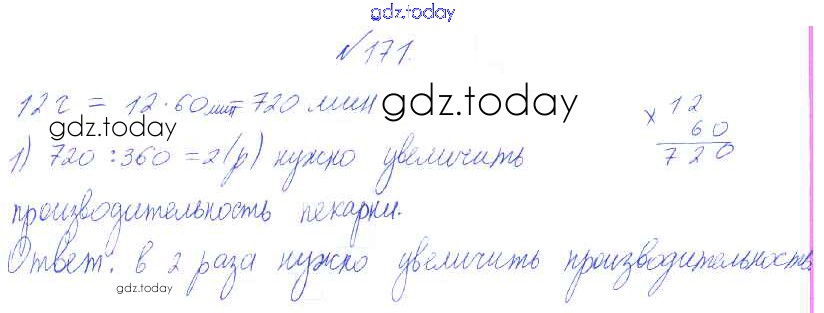 gdz.today
№171.
12 г = 12·60мин=720 мин gdz.today
gdz.today
× 12
60
720
1) 720:360=2(р) нужно увеличить
производительность пекарни.
Ответ: в 2 раза нужно увеличить производительность.
gdz.today